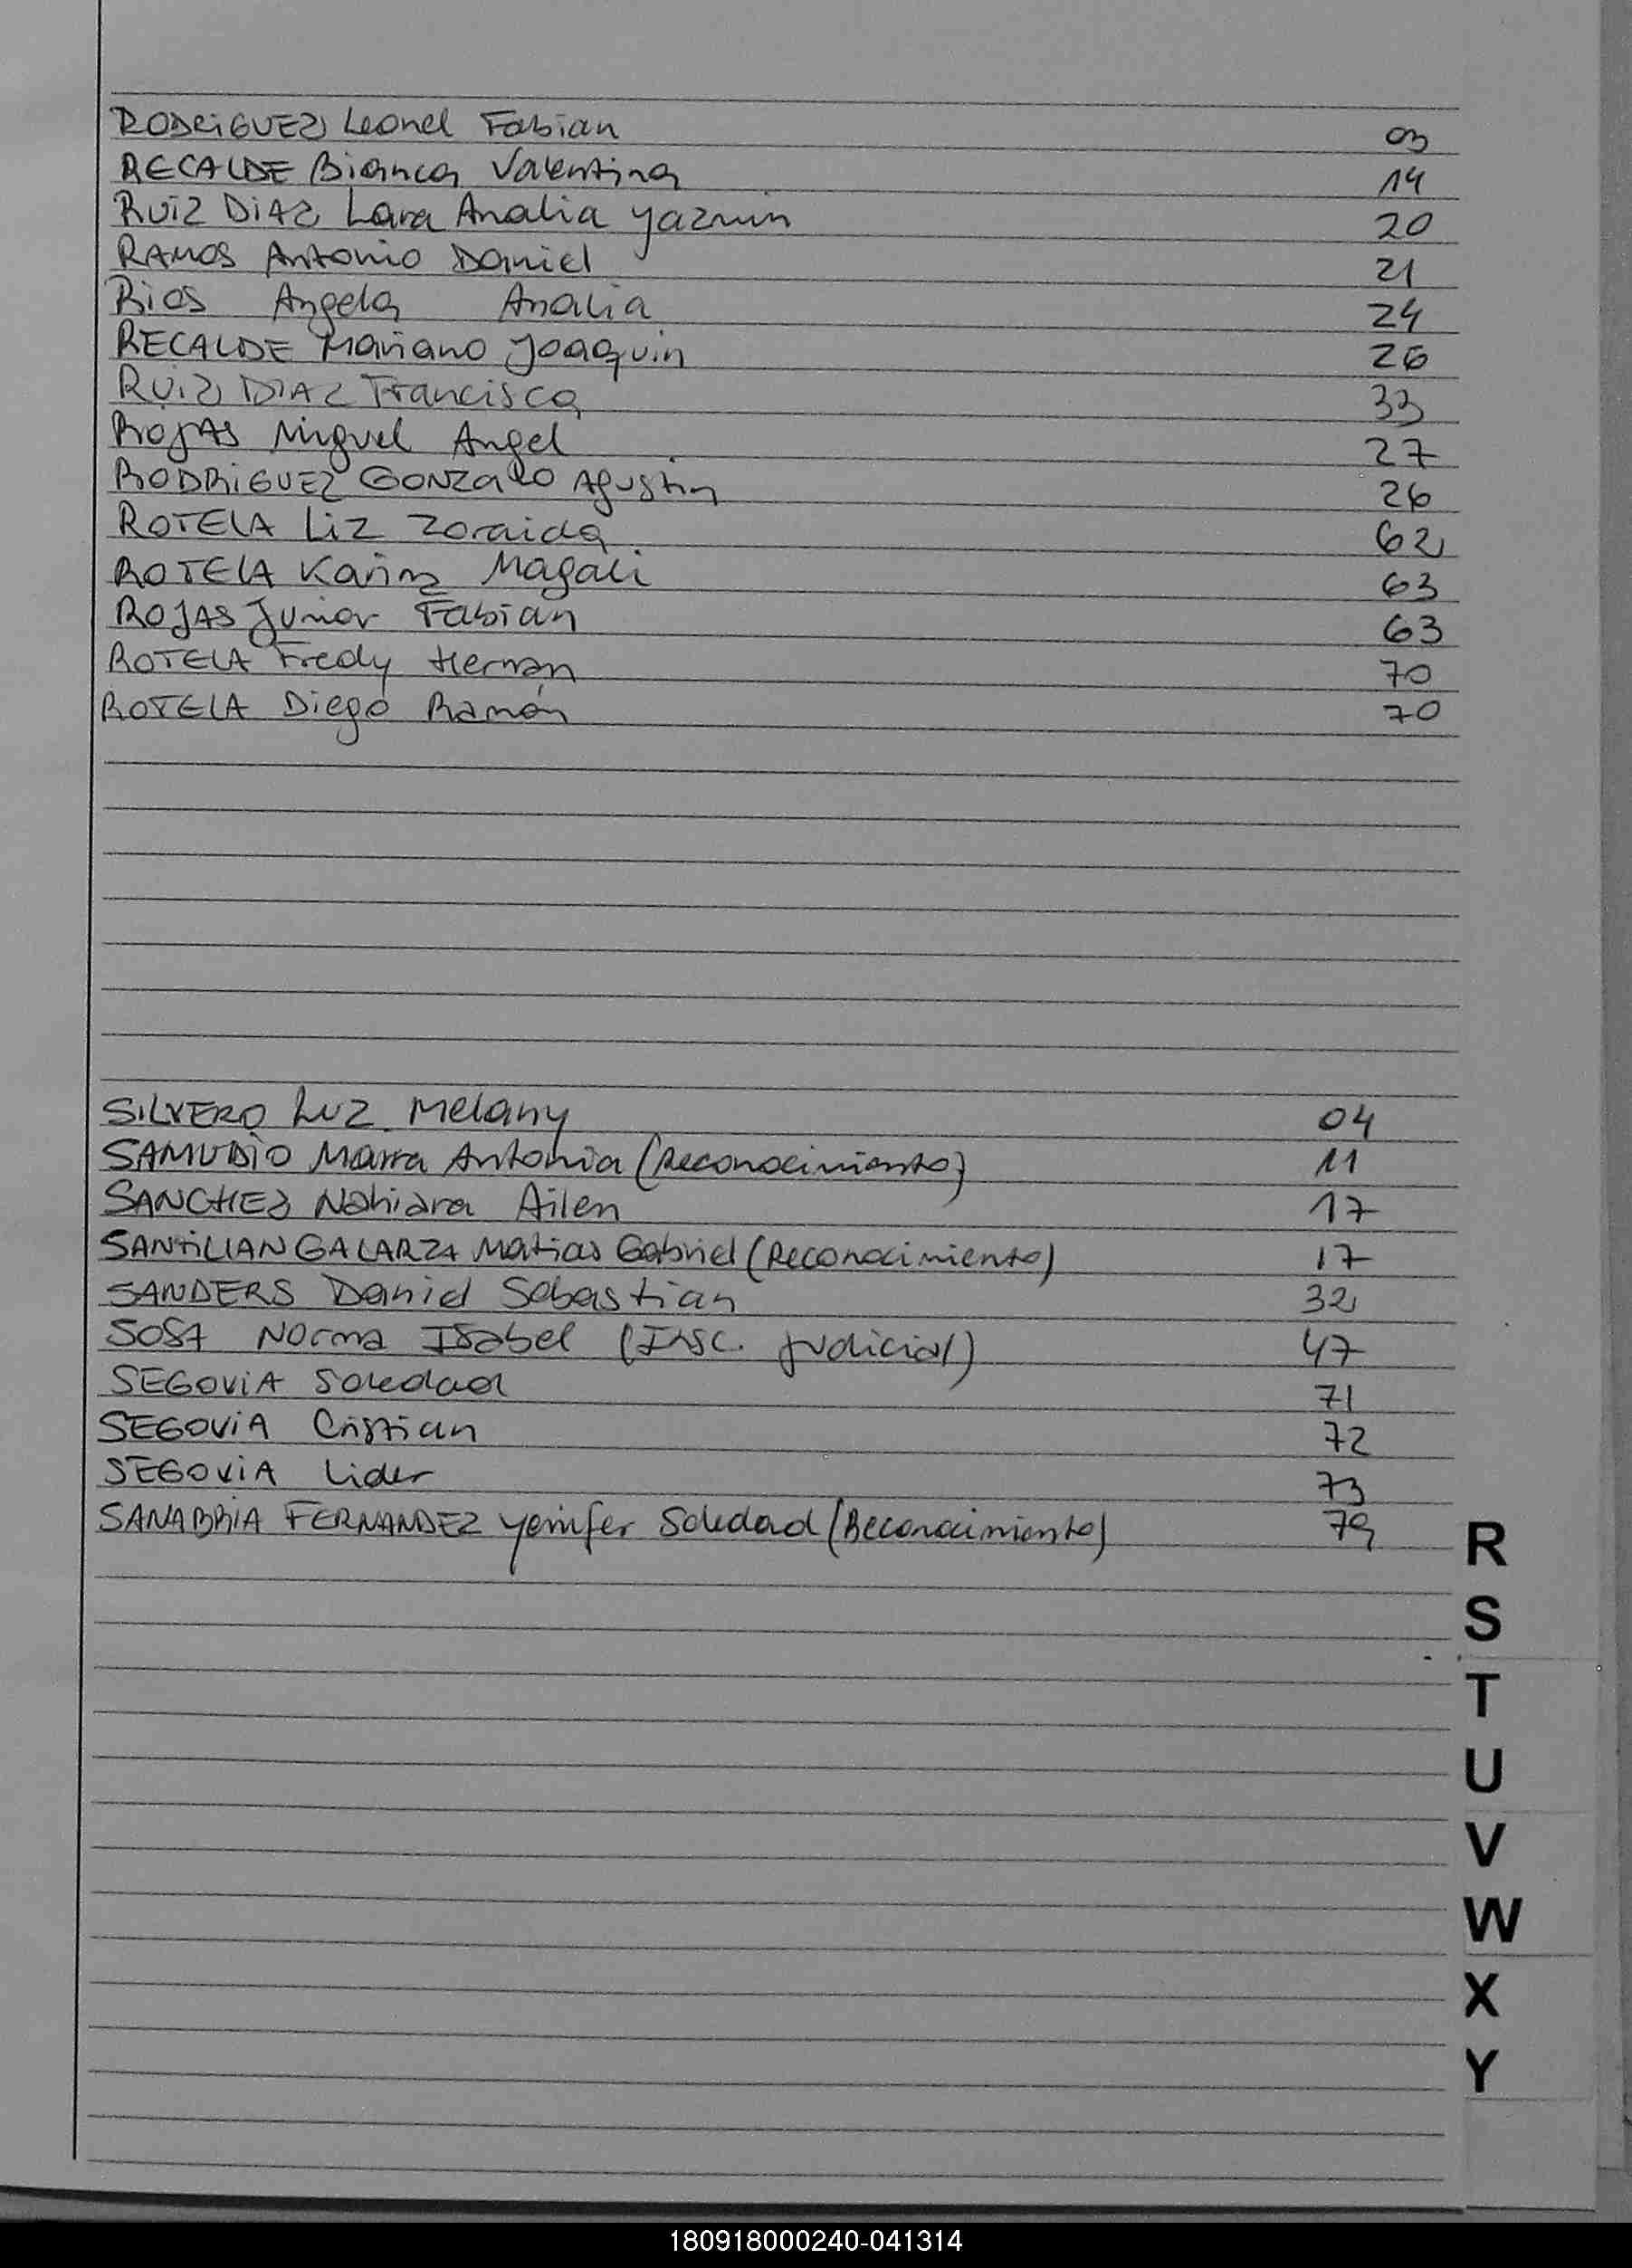 RODRIGUEZ Leonel Fabian 03
RECALDE Bianca Valentina 14
RUIZ DIAZ Lara Analia Yazmin 20
RAMOS Antonio Daniel 21
RIOS Angela Analia 24
RECALDE Mariano Joaquin 26
RUIZ DIAZ Francisca 33
ROJAS Miguel Angel 27
RODRIGUEZ GONZALO Agustin 26
ROTELA Liz Zoraida 62
ROTELA Karina Magali 63
ROJAS Junior Fabian 63
ROTELA Fredy Hernan 70
ROTELA Diego Ramón 70
SILVERO LUZ Melany 04
SAMUDIO Maria Antonia (Reconocimiento) 11
SANCHEZ Nahiara Ailen 17
SANTILLAN GALARZA Matias Gabriel (Reconocimiento) 17
SANDERS Daniel Sebastian 32
SOSA Norma Isabel (Insc. Judicial) 47
SEGOVIA Soledad 71
SEGOVIA Cristian 72
SEGOVIA Lider 73
SANABRIA FERNANDEZ Yenifer Soledad (Reconocimiento) 79
R
S
T
U
V
W
X
Y
180918000240-041314